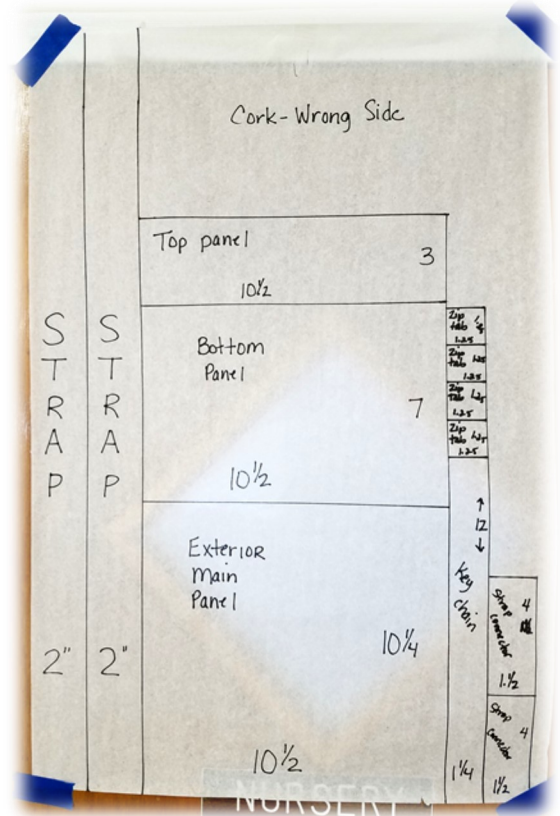 Cork-Wrong Side
Top panel
3
10½
Bottom
Panel
7
10½
Exterior
Main
Panel
10¼
10½
STRAP
2"
STRAP
2"
Zip
tab
1.25
Zip
tab 1.25
1.25
Zip
tab 1.25
1.25
Zip
tab 1.25
1.25
12
Key
chain
1¼
Strap
connector
4
1.½
Strap
connector
4
1½
NURSERY